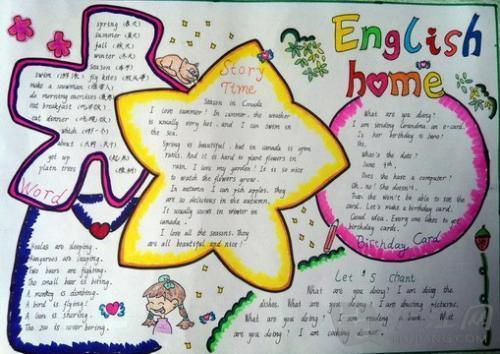 English
home
spring (春天)
summer (夏天)
fall (秋天)
winter (冬天)
season (季节)
swim (游泳) fly kites (放风筝)
make a snowman (堆雪人)
do morning exercises (晨练)
eat breakfast (吃早饭)
eat dinner (吃晚饭)
which (哪一个)
about (大约 关于)
get up (起床)
plant trees (植树)
Word
Story
Time
Season in Canada
I love summer! In summer, the weather
is usually very hot, and I can swim in
the sea.
Spring is beautiful, but in canada is often
rains. And it is hard to plant flowers in
rain. I love my garden! It is so nice
to watch the flowers grow.
In autumn I can pick apples. they
are so delicious in the autumn.
It usually snows in winter in
canada.
I love all the seasons. They
are all beautiful and nice!
What are you doing?
I am sending Grandma an e-card.
Is her birthday is June?
Yes.
What's the date?
June 9th.
Does she have a computer?
Oh, no! She doesn't.
Then she won't be able to see the
card. Let's make a birthday card.
Good idea. Every one likes to get
birthday cards.
Birthday Card
Koalas are sleeping.
Kangaroos are jumping.
Two bears are fighting.
The small bear is biting.
A monkey is climbing.
A bird is flying!
A lion is
The zoo is never boring.
Let's chant
What are you doing? I am doing the
dishes. What are you doing? I am drawing pictures.
What are you doing? I am reading a book. What
are you doing? I am cooking dinner.